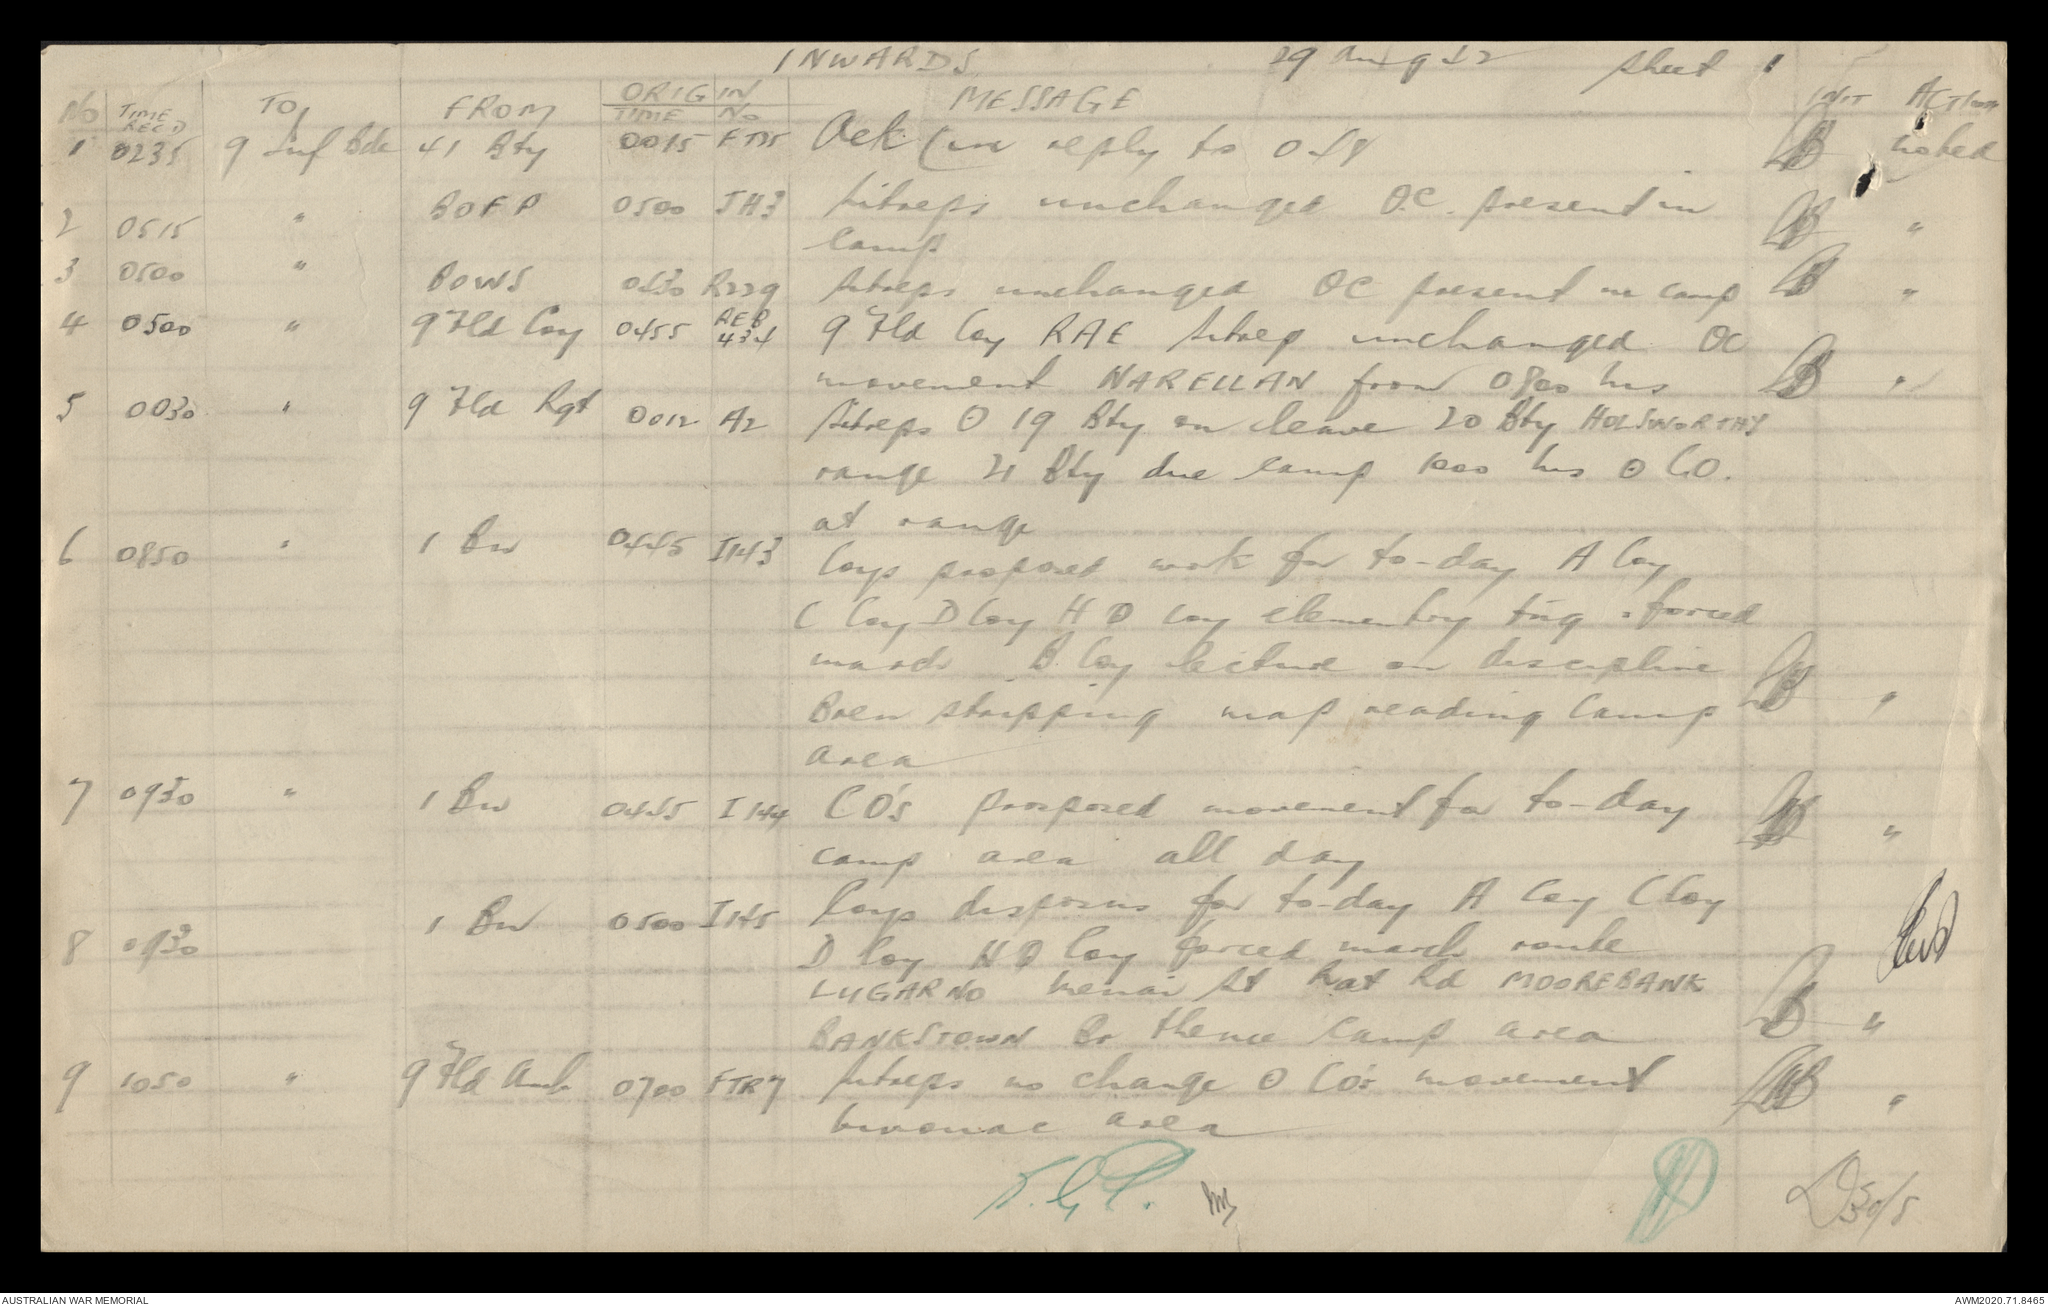 INWARDS 29 Aug 42 Sheet 1
No TIME REC'D TO FROM ORIGIN TIME No MESSAGE INIT ACTION
1 0235 9 Inf Bde 41 Bty 0015 FT35 Ack (in reply to 048 noted
2 0515 " BOFP 0500 JH3 Sitreps unchanged O.C. present in
camp "
3 0500 " BOWS 0430 R229 Sitreps unchanged OC present in camp "
4 0500 " 9 Fld Coy 0455 REB 434 9 Fld Coy RAE Sitrep unchanged OC
movement NARELLAN from 0800 hrs "
5 0030 " 9 Fld Rgt 0012 A2 Sitreps O 19 Bty on leave 20 Bty HOLSWORTHY
range 21 Bty due camp 1000 hrs O CO.
at range
6 0850 " 1 Bn 0445 I143 Coys proposed work for to-day A Coy
C Coy D Coy H Q Coy elementry tng forced
march B Coy lecture on discipline
Bren stripping map reading camp "
area
7 0930 " 1 Bn 0455 I144 CO's proposed movement for to-day
camp area all day "
8 0930 1 Bn 0500 I145 Coys disposns for to-day A Coy C Coy
D Coy H Q Coy forced march route
LUGARNO Menai St Rd MOOREBANK
BANKSTOWN Br thence camp area "
9 1050 " 9 Fld Amb 0700 FTR7 Sitreps no change O CO's movement
bivouac area "
30/8